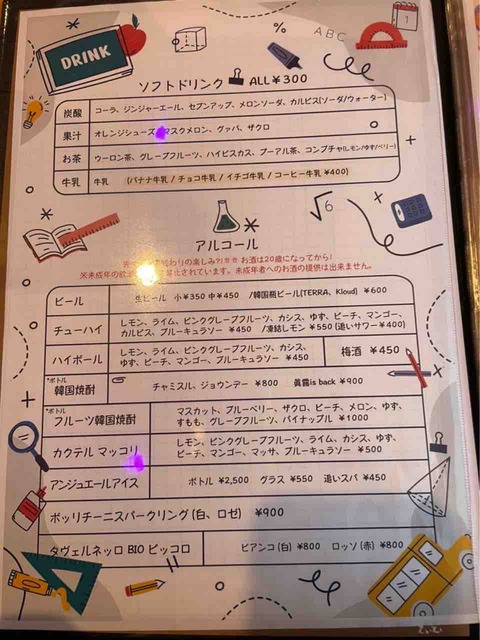 DRINK
ABC
1
ソフトドリンク ALL¥300
炭酸 コーラ、ジンジャーエール、セブンアップ、メロンソーダ、カルピス(ソーダ/ウォーター)
果汁 オレンジジュース、マスクメロン、グァバ、ザクロ
お茶 ウーロン茶、グレープフルーツ、ハイビスカス、プーアル茶、コンブチャ(レモン/ゆず/ベリー)
牛乳 牛乳 (バナナ牛乳 / チョコ牛乳 / イチゴ牛乳 / コーヒー牛乳 ¥400)
√6
アルコール
わりの楽しみ?!※※ お酒は20歳になってから!
※未成年の飲 禁止されています。未成年者へのお酒の提供は出来ません。
ビール 生ビール 小¥350 中¥450 /韓国瓶ビール(TERRA、Kloud) ¥600
チューハイ レモン、ライム、ピンクグレープフルーツ、カシス、ゆず、ピーチ、マンゴー、
カルピス、ブルーキュラソー ¥450 /凍結レモン ¥550 (追いサワー¥400)
ハイボール レモン、ライム、ピンクグレープフルーツ、カシス、
ゆず、ピーチ、マンゴー、ブルーキュラソー ¥450
梅酒 ¥450
*ボトル
韓国焼酎 チャミスル、ジョウンデー ¥800 眞露is back ¥900
*ボトル
フルーツ韓国焼酎 マスカット、ブルーベリー、ザクロ、ピーチ、メロン、ゆず、
すもも、グレープフルーツ、パイナップル ¥1000
カクテル マッコリ レモン、ピンクグレープフルーツ、ライム、カシス、ゆず、
ピーチ、マンゴー、マッサ、ブルーキュラソー ¥500
アンジュエールアイス ボトル ¥2,500 グラス ¥550 追いスパ ¥450
ボッリチーニスパークリング (白、ロゼ) ¥900
タヴェルネッロ BIO ピッコロ ビアンコ (白) ¥800 ロッソ (赤) ¥800